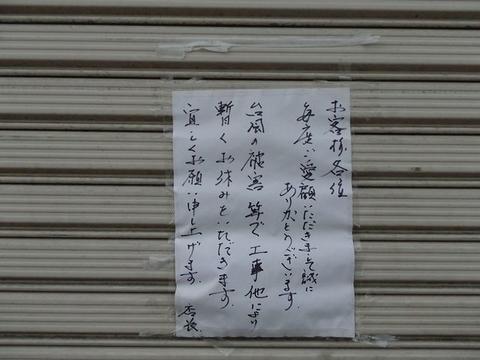 お客様各位
毎度ご愛顧いただきまして誠に
ありがとうございます。
台風の被害等で工事他により
暫くお休みをいただきます。
宜しくお願い申し上げます。
店長